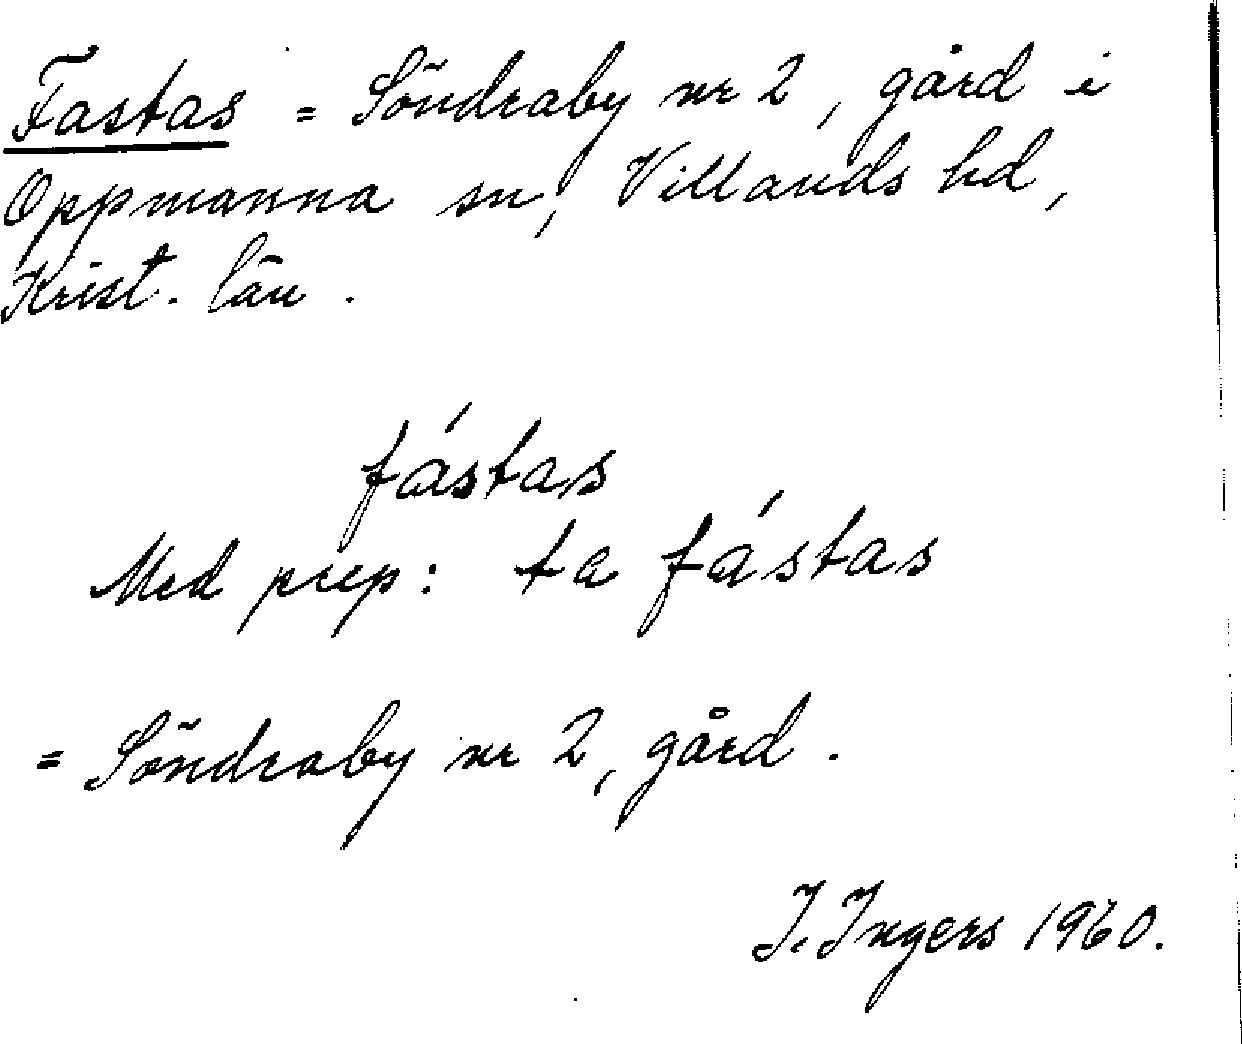 Fastas = Söndraby nr 2, gård i
Oppmanna sn, Villands hd,
Krist. län.
fástas
Med prep: ta fástas
= Söndraby nr 2, gård.
I. Ingers 1960.